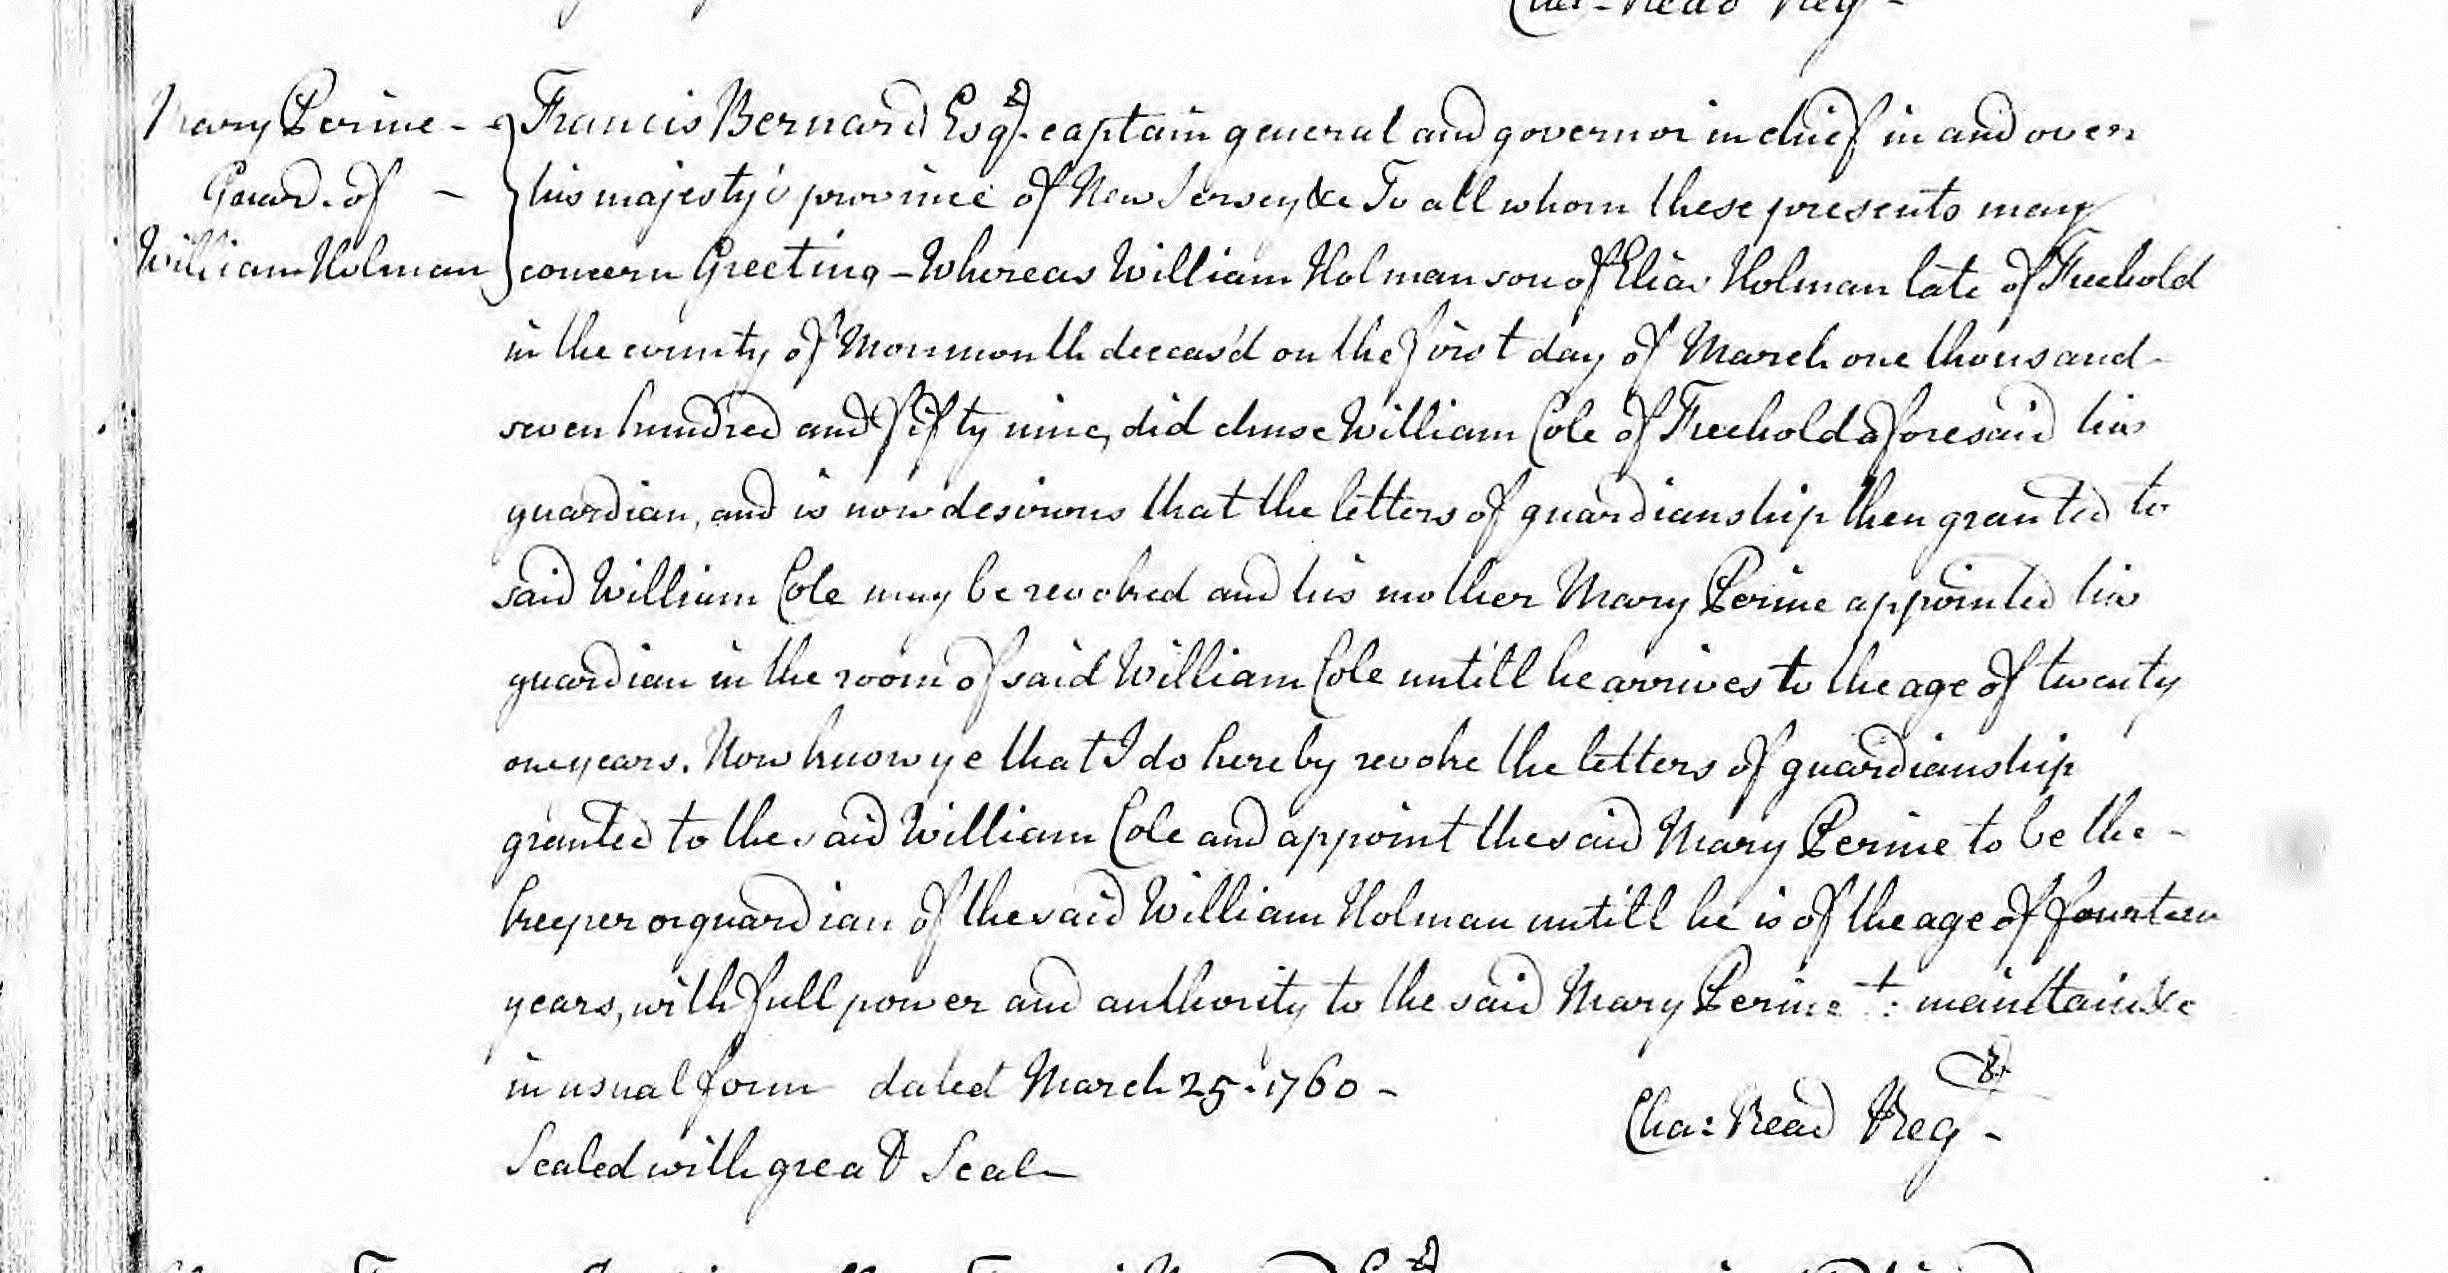 Cha: Read Reg
Mary Perine - Francis Bernard Esqr. captain general and governor in chief in and over
Guard. of - his majesty's province of New Jersey &c To all whom these presents may
William Holman concern Greeting - Whereas William Holman son of Elias Holman late of Freehold
in the county of Monmouth deceas'd on the first day of March one thousand
seven hundred and fifty nine, did chuse William Cole of Freehold aforesaid his
guardian, and is now desirous that the letters of guardianship then granted to
said William Cole may be revoked and his mother Mary Perine appointed his
guardian in the room of said William Cole untill he arrives to the age of twenty
one years. Now know ye that I do hereby revoke the letters of guardianship
granted to the said William Cole and appoint the said Mary Perine to be the -
keeper or guardian of the said William Holman untill he is of the age of fourteen
years, with full power and authority to the said Mary Perine to maintain &c
in usual form dated March 25. 1760 -
Cha: Read Regr -
Sealed with great Seal